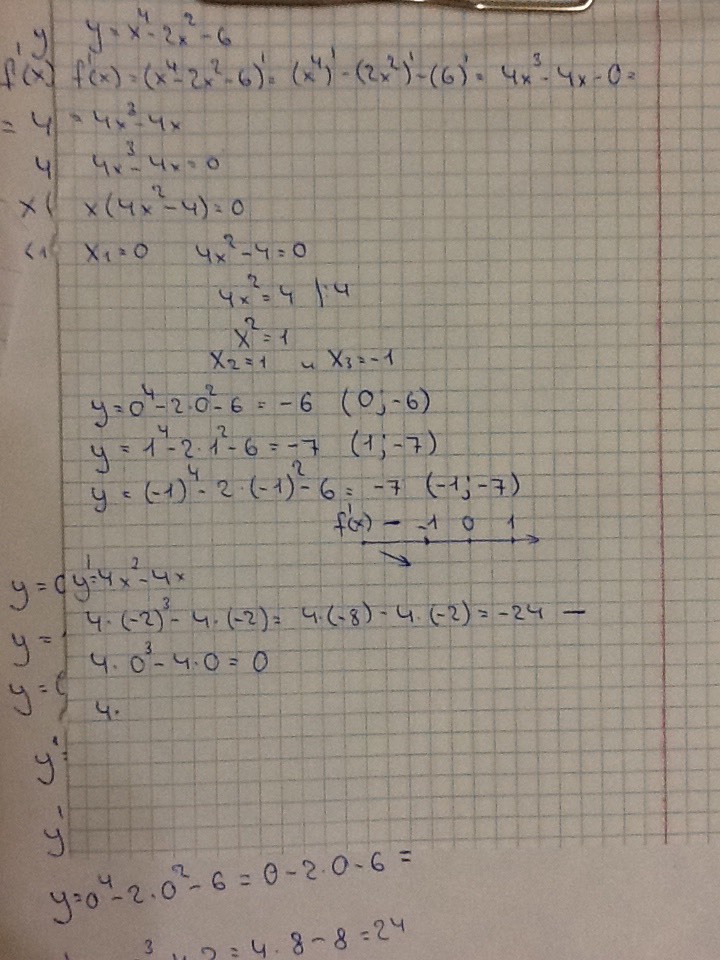 y y = x⁴ - 2x² - 6
f'(x) f'(x) = (x⁴ - 2x² - 6)' = (x⁴)' - (2x²)' - (6)' = 4x³ - 4x - 0 =
= 4 = 4x³ - 4x
4 4x³ - 4x = 0
x( x(4x² - 4) = 0
x₁ = 0 4x² - 4 = 0
4x² = 4 |:4
x² = 1
x₂ = 1 и x₃ = -1
y = 0⁴ - 2·0² - 6 = -6 (0; -6)
y = 1⁴ - 2·1² - 6 = -7 (1; -7)
y = (-1)⁴ - 2·(-1)² - 6 = -7 (-1; -7)
f'(x) - -1 0 1
y = 0 y' = 4x² - 4x
4·(-2)³ - 4·(-2) = 4·(-8) - 4·(-2) = -24 —
y =
4·0³ - 4·0 = 0
y =
4·
y =
y
y = 0⁴ - 2·0² - 6 = 0 - 2·0 - 6 =
= 4·8 - 8 = 24